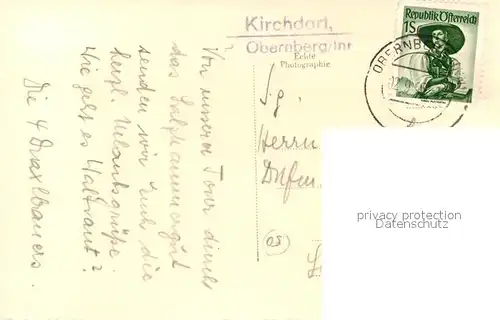 Kirchdorf,
Obernberg/Inn
Echte
Photographie
Republik Österreich
1S
OBERNBERG
Von unserer Tour durch
das Salzkammergut
senden wir Euch die
herzl. Urlaubsgrüße.
Wie geht es Waltraut?
Die 4 Draxlbauers.
S.g.
Herrn
privacy protection
Datenschutz